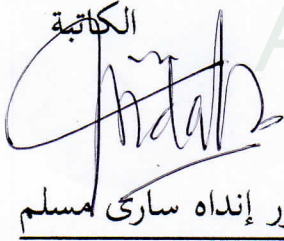 الكاتبة
ر إنداه سارى مسلم